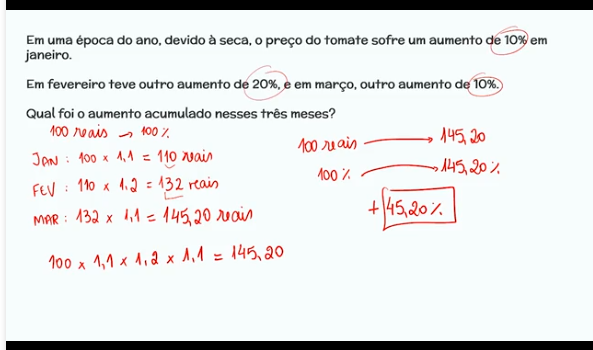 Em uma época do ano, devido à seca, o preço do tomate sofre um aumento de 10% em
janeiro.
Em fevereiro teve outro aumento de 20%, e em março, outro aumento de 10%.
Qual foi o aumento acumulado nesses três meses?
100 reais → 100%
JAN : 100 x 1,1 = 110 reais
FEV : 110 x 1,2 = 132 reais
MAR : 132 x 1,1 = 145,20 reais
100 x 1,1 x 1,2 x 1,1 = 145,20
100 reais → 145,20
100% → 145,20%
+ 45,20%